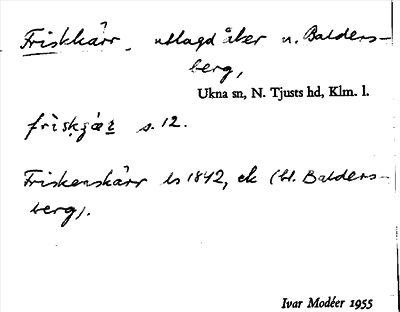 Friskkärr, utlagd åker u. Balders-
berg,
Ukna sn, N. Tjusts hd, Klm. l.
friskjær s. 12.
Friskenskärr ls 1842, ek (bl. Balders-
berg).
Ivar Modéer 1955